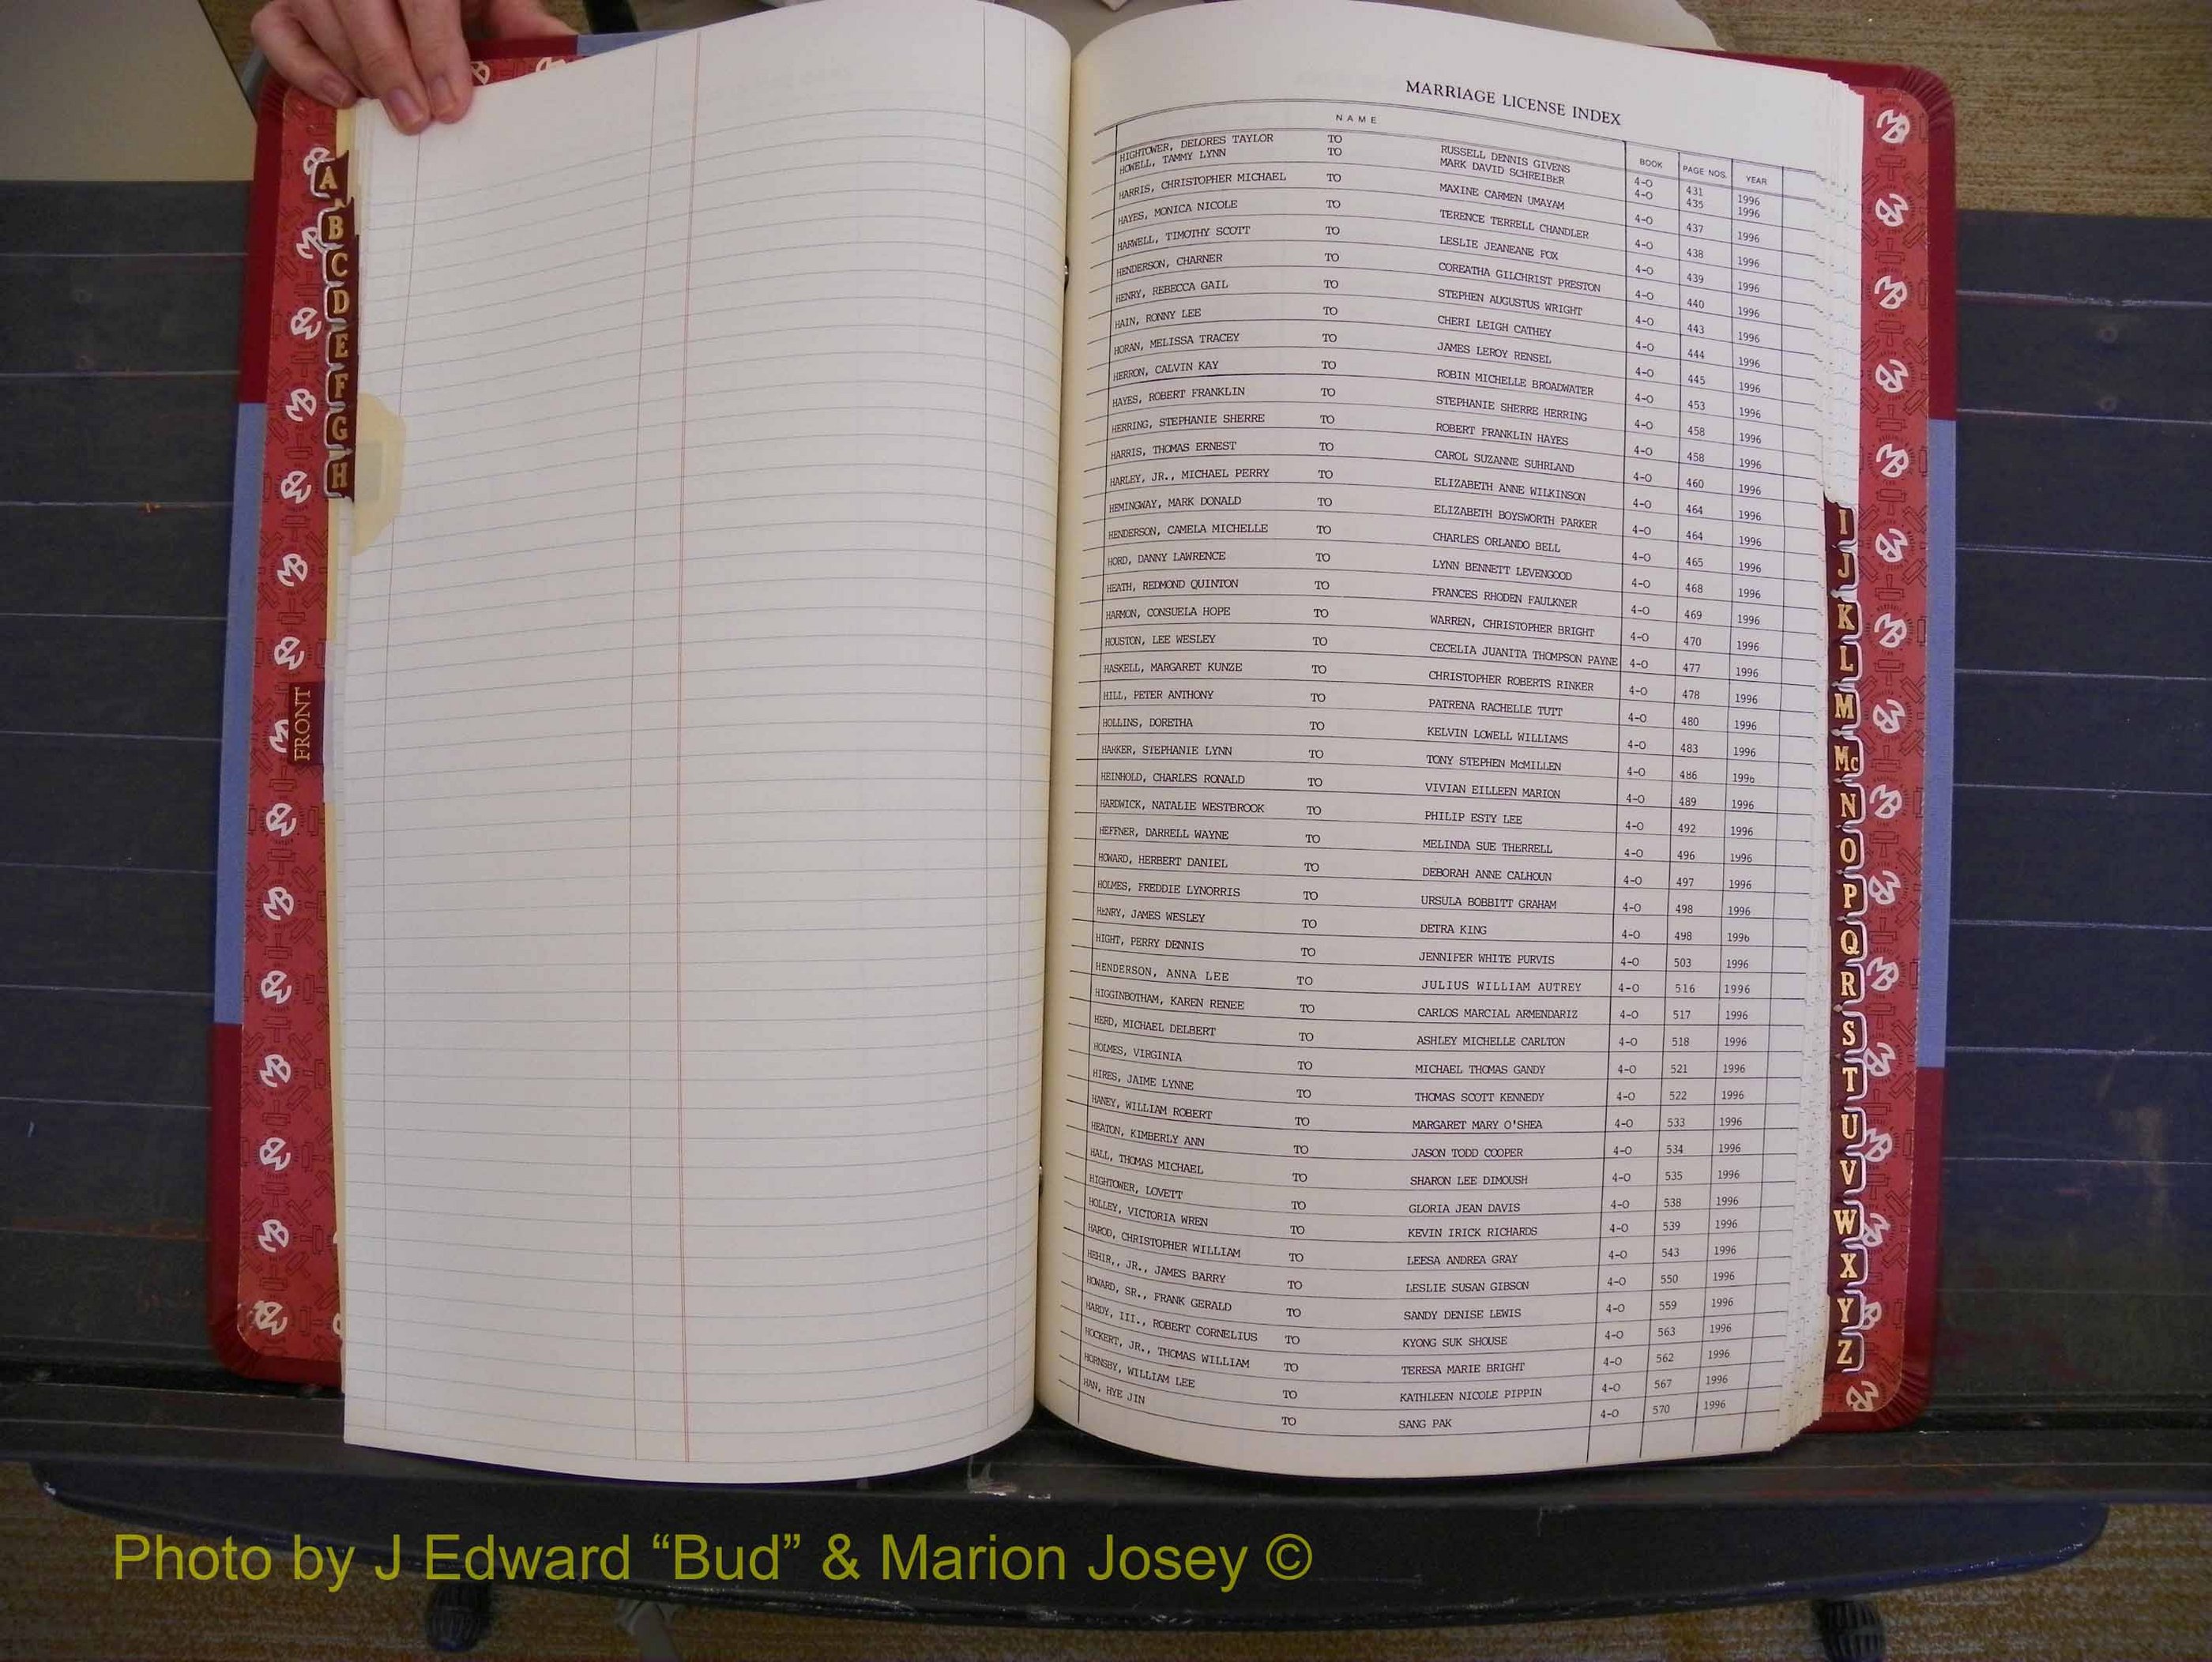 MARRIAGE LICENSE INDEX
NAME BOOK PAGE NOS. YEAR
HIGHTOWER, DELORES TAYLOR TO RUSSELL DENNIS GIVENS 4-O 431 1996
HOWELL, TAMMY LYNN TO MARK DAVID SCHREIBER 4-O 435 1996
HARRIS, CHRISTOPHER MICHAEL TO MAXINE CARMEN UMAYAM 4-O 437 1996
HAYES, MONICA NICOLE TO TERENCE TERRELL CHANDLER 4-O 438 1996
HARWELL, TIMOTHY SCOTT TO LESLIE JEANEANE FOX 4-O 439 1996
HENDERSON, CHARNER TO COREATHA GILCHRIST PRESTON 4-O 440 1996
HENRY, REBECCA GAIL TO STEPHEN AUGUSTUS WRIGHT 4-O 443 1996
HAIN, RONNY LEE TO CHERI LEIGH CATHEY 4-O 444 1996
HORAN, MELISSA TRACEY TO JAMES LEROY RENSEL 4-O 445 1996
HERRON, CALVIN KAY TO ROBIN MICHELLE BROADWATER 4-O 453 1996
HAYES, ROBERT FRANKLIN TO STEPHANIE SHERRE HERRING 4-O 458 1996
HERRING, STEPHANIE SHERRE TO ROBERT FRANKLIN HAYES 4-O 458 1996
HARRIS, THOMAS ERNEST TO CAROL SUZANNE SUHRLAND 4-O 460 1996
HARLEY, JR., MICHAEL PERRY TO ELIZABETH ANNE WILKINSON 4-O 464 1996
HEMINGWAY, MARK DONALD TO ELIZABETH BOYSWORTH PARKER 4-O 464 1996
HENDERSON, CAMELA MICHELLE TO CHARLES ORLANDO BELL 4-O 465 1996
HORD, DANNY LAWRENCE TO LYNN BENNETT LEVENGOOD 4-O 468 1996
HEATH, REDMOND QUINTON TO FRANCES RHODEN FAULKNER 4-O 469 1996
HARMON, CONSUELA HOPE TO WARREN, CHRISTOPHER BRIGHT 4-O 470 1996
HOUSTON, LEE WESLEY TO CECELIA JUANITA THOMPSON PAYNE 4-O 477 1996
HASKELL, MARGARET KUNZE TO CHRISTOPHER ROBERTS RINKER 4-O 478 1996
HILL, PETER ANTHONY TO PATRENA RACHELLE TUTT 4-O 480 1996
HOLLINS, DORETHA TO KELVIN LOWELL WILLIAMS 4-O 483 1996
HARKER, STEPHANIE LYNN TO TONY STEPHEN McMILLEN 4-O 486 1996
HEINHOLD, CHARLES RONALD TO VIVIAN EILLEEN MARION 4-O 489 1996
HARDWICK, NATALIE WESTBROOK TO PHILIP ESTY LEE 4-O 492 1996
HEFFNER, DARRELL WAYNE TO MELINDA SUE THERRELL 4-O 496 1996
HOWARD, HERBERT DANIEL TO DEBORAH ANNE CALHOUN 4-O 497 1996
HOLMES, FREDDIE LYNORRIS TO URSULA BOBBITT GRAHAM 4-O 498 1996
HENRY, JAMES WESLEY TO DETRA KING 4-O 498 1996
HIGHT, PERRY DENNIS TO JENNIFER WHITE PURVIS 4-O 503 1996
HENDERSON, ANNA LEE TO JULIUS WILLIAM AUTREY 4-O 516 1996
HIGGINBOTHAM, KAREN RENEE TO CARLOS MARCIAL ARMENDARIZ 4-O 517 1996
HERD, MICHAEL DELBERT TO ASHLEY MICHELLE CARLTON 4-O 518 1996
HOLMES, VIRGINIA TO MICHAEL THOMAS GANDY 4-O 521 1996
HIRES, JAIME LYNNE TO THOMAS SCOTT KENNEDY 4-O 522 1996
HANEY, WILLIAM ROBERT TO MARGARET MARY O'SHEA 4-O 533 1996
HEATON, KIMBERLY ANN TO JASON TODD COOPER 4-O 534 1996
HALL, THOMAS MICHAEL TO SHARON LEE DIMOUSH 4-O 535 1996
HIGHTOWER, LOVETT TO GLORIA JEAN DAVIS 4-O 538 1996
HOLLEY, VICTORIA WREN TO KEVIN IRICK RICHARDS 4-O 539 1996
HAROD, CHRISTOPHER WILLIAM TO LEESA ANDREA GRAY 4-O 543 1996
HEHIR,, JR., JAMES BARRY TO LESLIE SUSAN GIBSON 4-O 550 1996
HOWARD, SR., FRANK GERALD TO SANDY DENISE LEWIS 4-O 559 1996
HARDY, III., ROBERT CORNELIUS TO KYONG SUK SHOUSE 4-O 563 1996
HOCKERT, JR., THOMAS WILLIAM TO TERESA MARIE BRIGHT 4-O 562 1996
HORNSBY, WILLIAM LEE TO KATHLEEN NICOLE PIPPIN 4-O 567 1996
HAN, HYE JIN TO SANG PAK 4-O 570 1996
A
B
C
D
E
F
G
H
FRONT
I
J
K
L
M
Mc
N
O
P
Q
R
S
T
U
V
W
X
Y
Z
Photo by J Edward “Bud” & Marion Josey ©